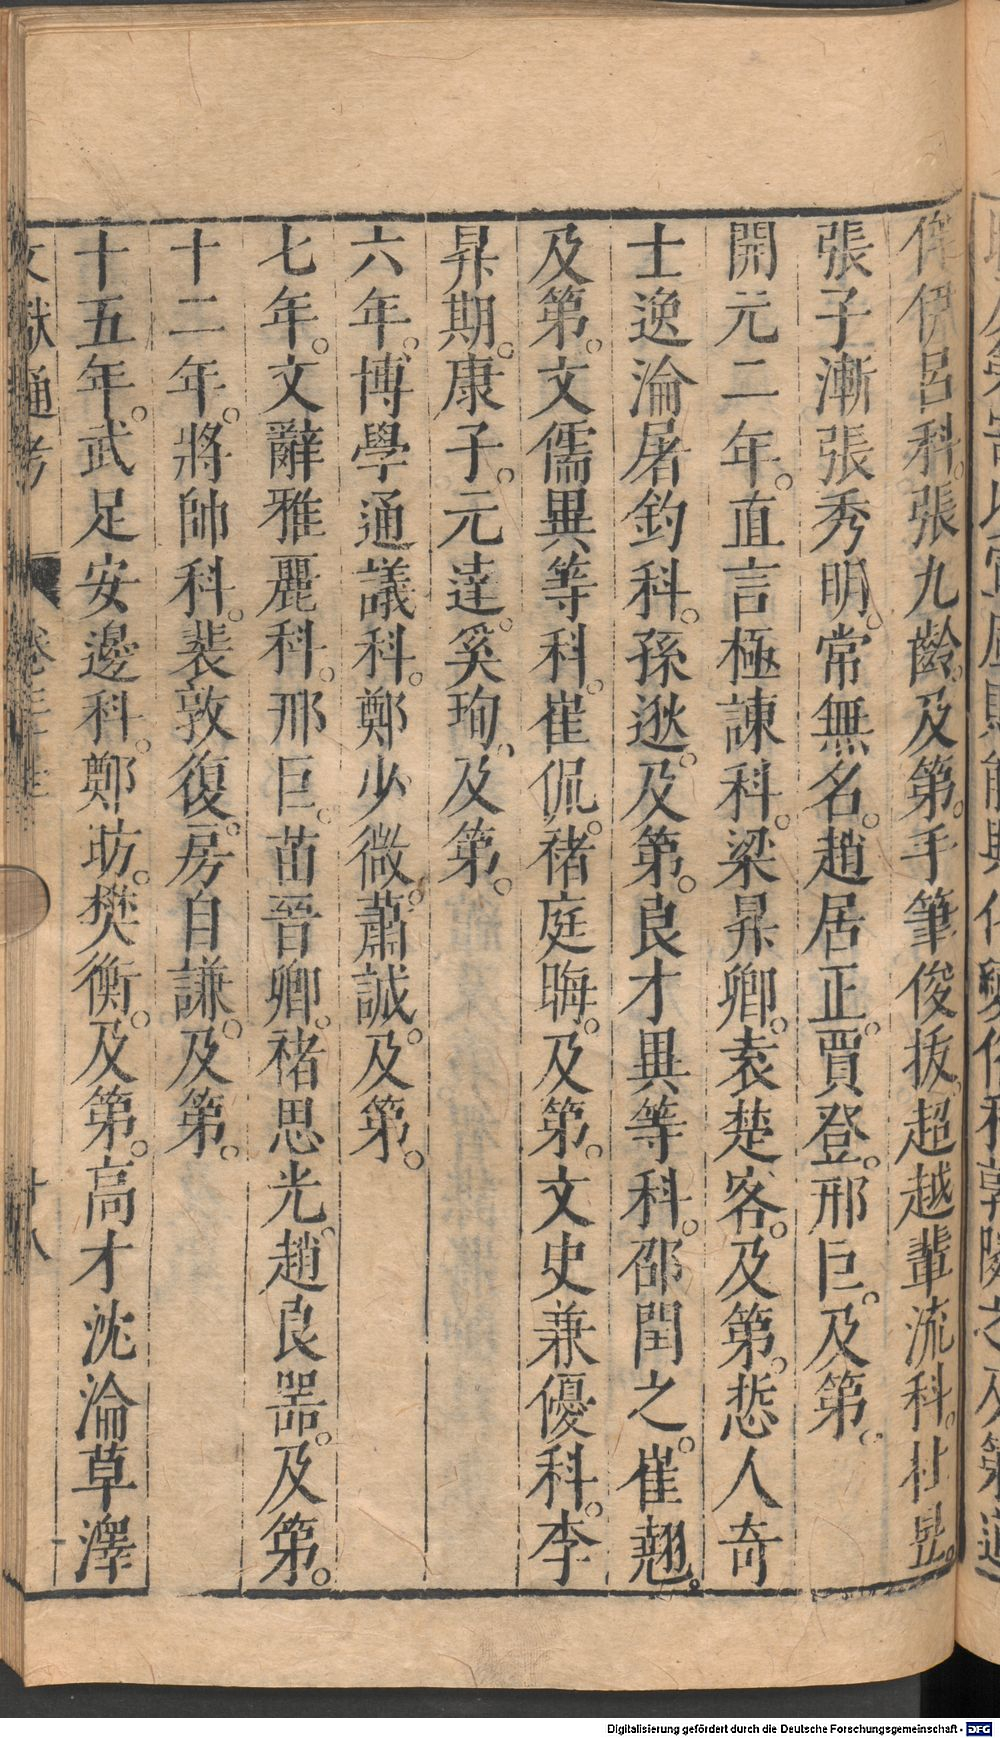 侔伊呂科。張九齡。及第。手筆俊抜、超越輩流科。杜昱。
張子漸張秀明。常無名。趙居正。賈登。邢巨。及第。
開元二年。直言極諫科。梁昇卿。袁楚客。及第。悊人奇
士逸淪屠釣科。孫逖。及第。良才異等科。邵閏之。崔翹。
及第。文儒異等科。崔侃。禇庭晦。及第。文史兼優科。李
昇期。康子。元逹。奚珣、及第。
六年。博學通議科。鄭少微。蕭誠。及第。
七年。文辭雅麗科。邢巨。苗晉卿。禇思光。趙良器。及第。
十二年。將帥科。裴敦復。房自謙。及第。
十五年。武足安邊科。鄭昉。樊衡。及第。高才沈淪草澤
文獻通考 卷三十三 廿八
Digitalisierung gefördert durch die Deutsche Forschungsgemeinschaft - DFG